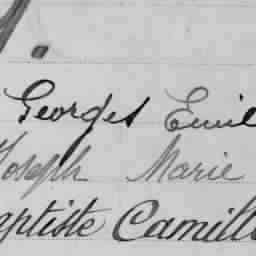 Georges Emil
Joseph Marie
aptiste Camill